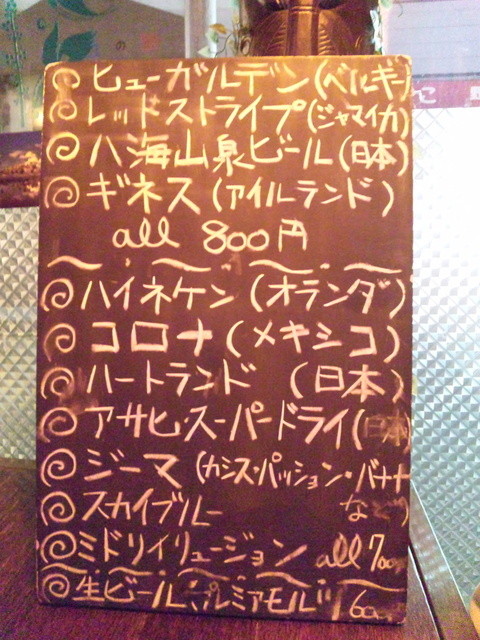 ヒューガルデン(ベルギー
レッドストライプ(ジャマイカ)
八海山泉ビール(日本)
ギネス(アイルランド)
all 800円
ハイネケン(オランダ)
コロナ(メキシコ)
ハートランド (日本)
アサヒスーパードライ(日本
ジーマ(カシス・パッション・バナナ
スカイブルー など)
ミドリイリュージョン all 700
生ビール プレミアモルツ 600